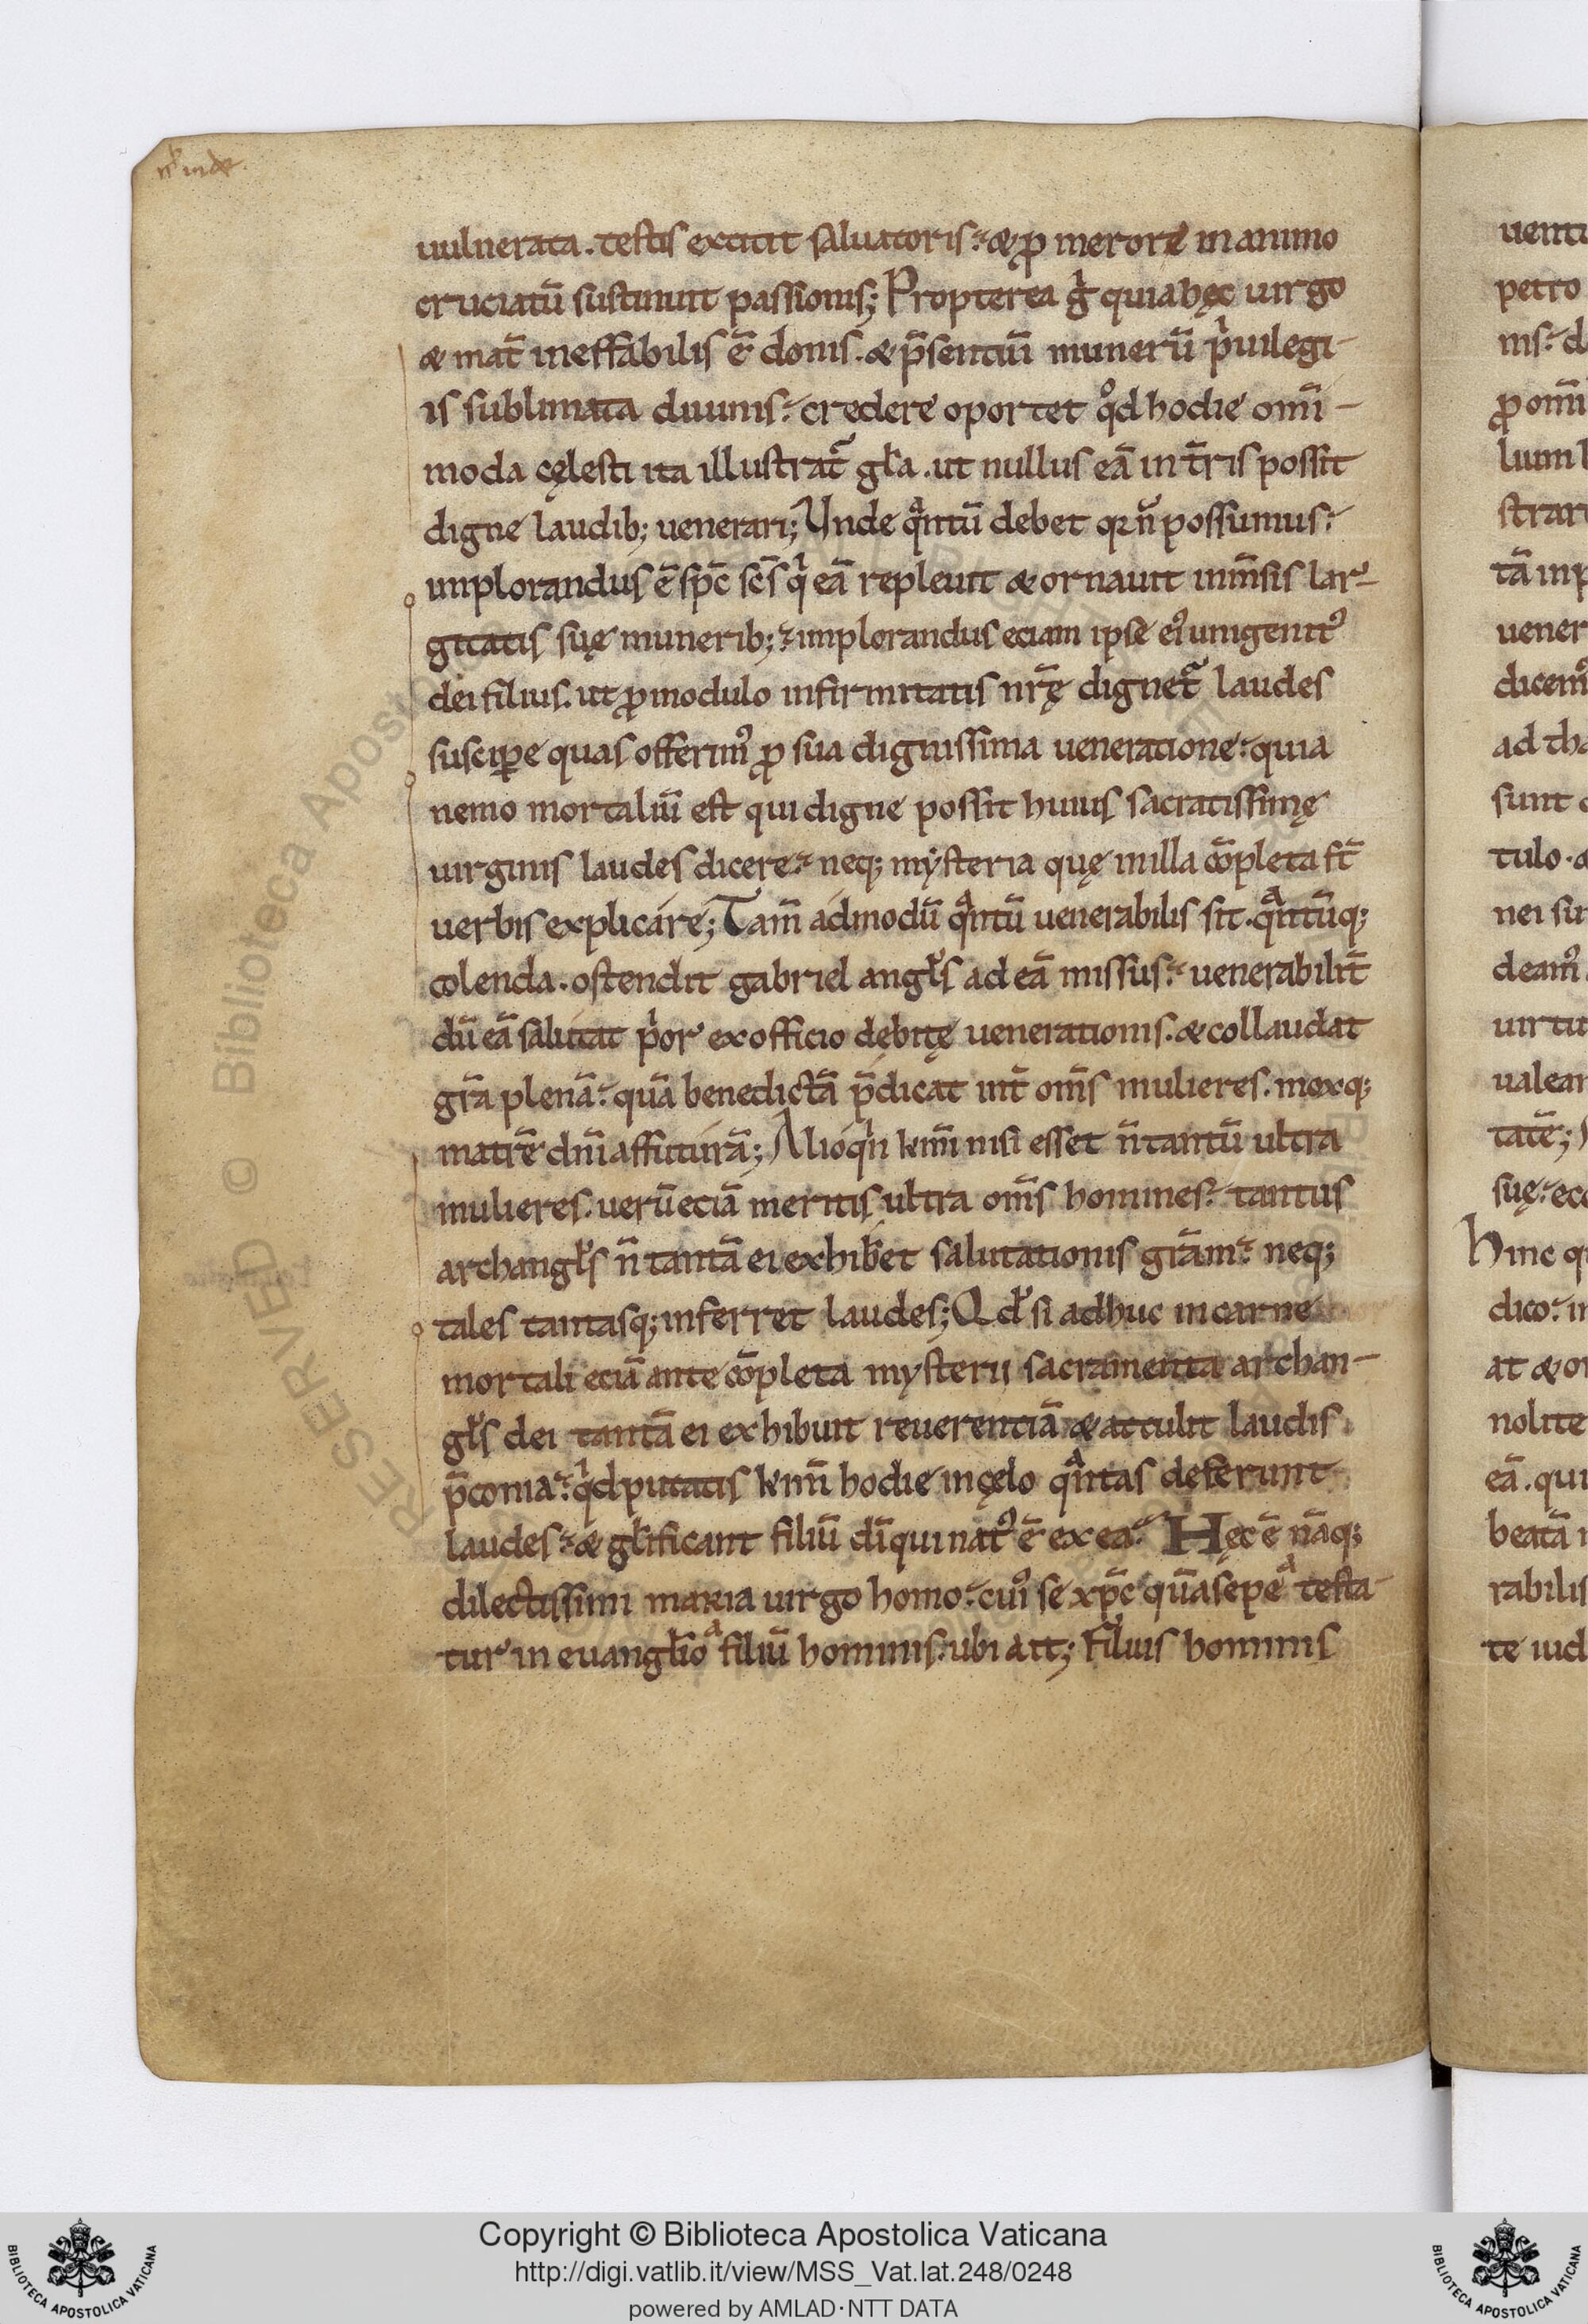 uulnerata. testis extitit saluatoris. & ꝓ merore in animo
cruciatū sustinuit passionis; Propterea gͥ quia hęc uirgo
& mat̄ ineffabilis ē donis. & p̄sentiū munerū pͥuilegi-
is sublimata diuinis. credere oportet qͦd hodie om̄i-
moda cęlesti ita illustrat᷑ gl̄a. ut nullus eā in t̄ris possit
digne laudib; uenerari; Unde qͣntū debet qꝛ n̄ possumus.
implorandus ē sp̄c sc̄s qͥ eā repleuit & ornauit inm̄sis lar-
gitatis suę munerib; implorandus eciam ipse eiꝰ unigenitꝰ
dei filius. ut ꝓ modulo infirmitatis nr̄ę dignet᷑ laudes
suscipe quas offerimꝰ ꝓ sua dignissima ueneratione. quia
nemo mortaliū est qui digne possit huius sacratissimę
uirginis laudes dicere. neq; mẏsteria quę in illa cōpleta st̄
uerbis explicare; Tam̄ admodū qͣntū uenerabilis sit. qͣntūq;
colenda. ostendit gabriel angl̄s ad eā missus. uenerabilit̄
dū eā salutat pͥor ex officio debitę uenerationis. & collaudat
gr̄a plenā. quā benedictā p̄dicat int̄ om̄s mulieres. moxq;
matrē dn̄i affuturā; Alioqͥn km̄i nisi esset n̄ tantū ultra
mulieres. uerū eciā meritis ultra om̄s homines. tantus
archangl̄s n̄ tantā ei exhib̄et salutationis gr̄am. neq;
tales tantasq; inferret laudes; Qd̄ si adhuc in carne
mortali eciā ante cōpleta mysterii sacramenta archan-
gl̄s dei tantā ei exhibuit reuerentiā & attulit laudis
p̄conia. qͥd putatis km̄i hodie in cęlo qͣntas deferunt
laudes. & gl̄ificant filiū dī qui natꝰ ē ex ea. Hęc ē nāq;
dilectissimi maria uirgo homo. cuiꝰ se xp̄c quā sepe testa-
tur in euangl̄io filiū hominis. ubi ait; Filius hominis
Copyright © Biblioteca Apostolica Vaticana
http://digi.vatlib.it/view/MSS_Vat.lat.248/0248
powered by AMLAD·NTT DATA
BIBLIOTECA APOSTOLICA VATICANA
BIBLIOTECA APOSTOLICA VATICANA